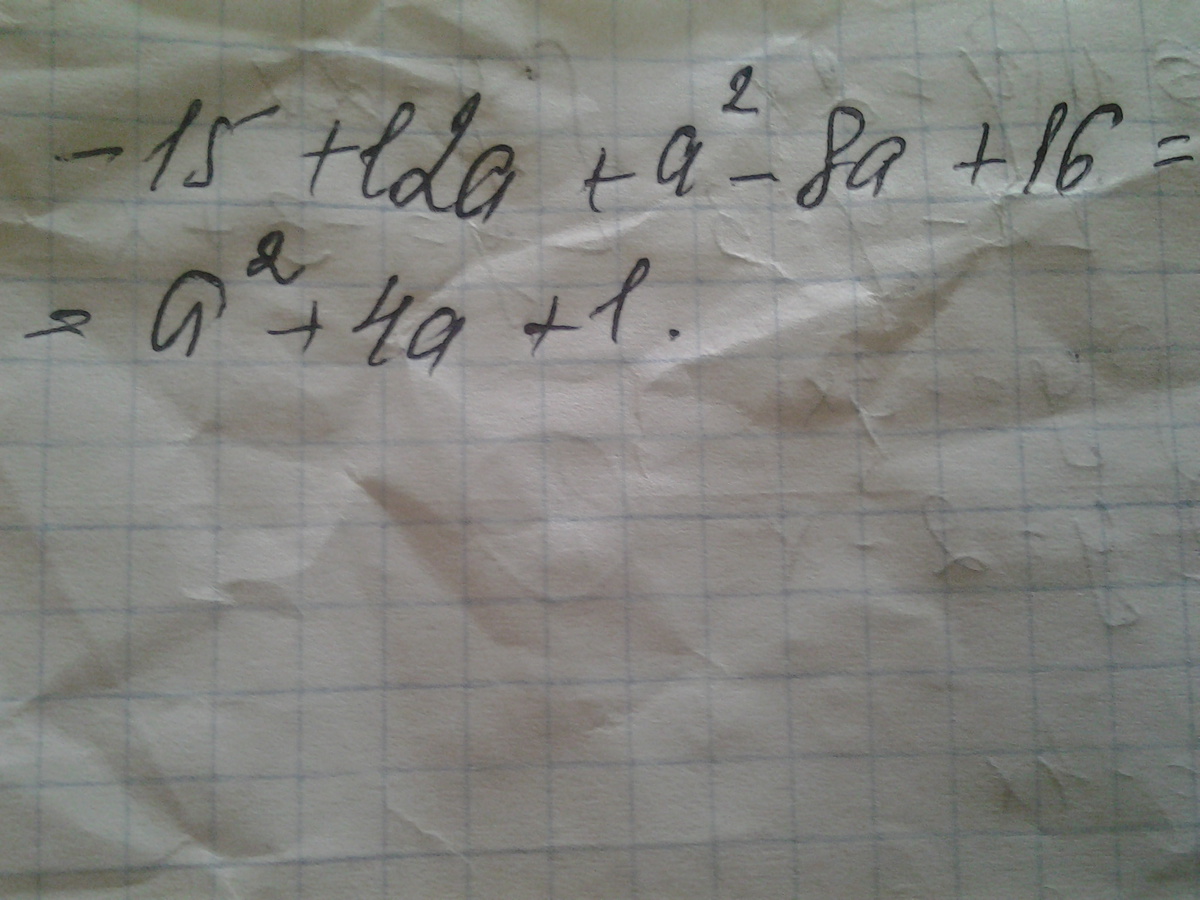 -15 + 12a + a² - 8a + 16 =
= a² + 4a + 1.